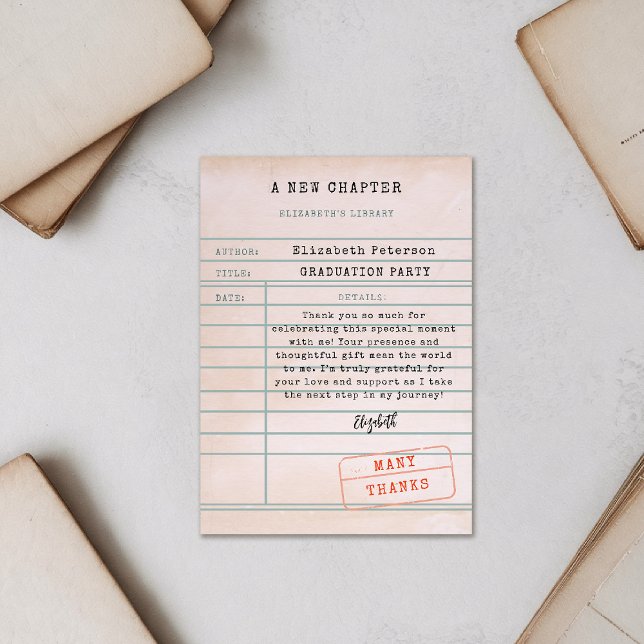 A NEW CHAPTER
ELIZABETH'S LIBRARY
AUTHOR: Elizabeth Peterson
TITLE: GRADUATION PARTY
DATE: DETAILS:
Thank you so much for
celebrating this special moment
with me! Your presence and
thoughtful gift mean the world
to me. I'm truly grateful for
your love and support as I take
the next step in my journey!
Elizabeth
MANY
THANKS